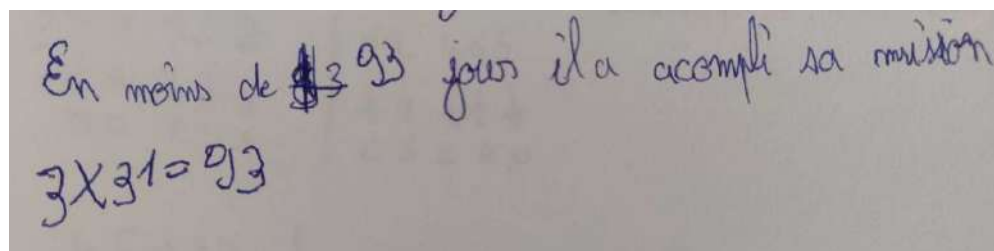 En moins de 93 jours il a acompli sa mission
3X31=93